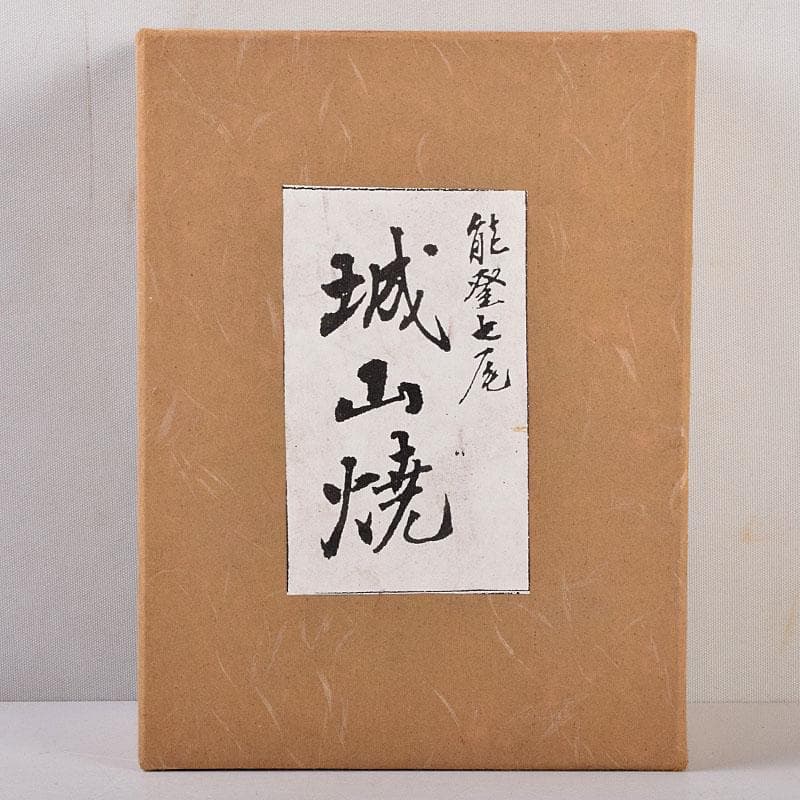 能登七尾
城山焼